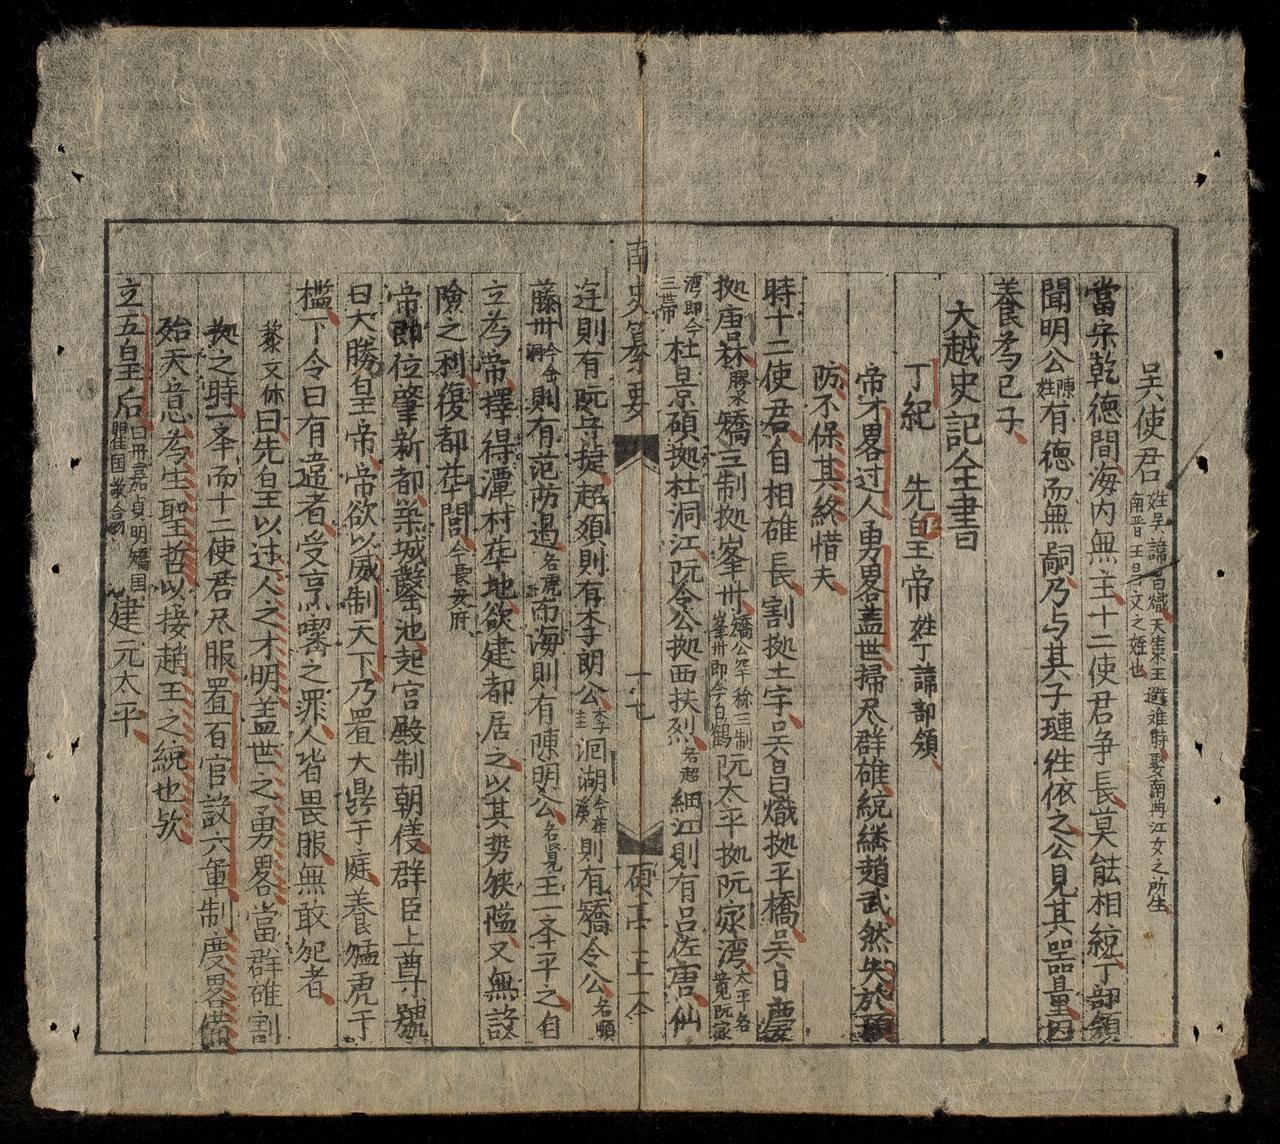 吳使君姓吳諱昌熾天策王避難時娶南冊江女之所生南晋王昌文之姪也
當宋乾德間海内無主十二使君争長莫能相統丁部領
聞明公陳姓有德而無嗣乃与其子璉徃依之公見其噐量因
養為己子
大越史記全書
丁紀　先皇帝姓丁諱部領
帝才畧过人勇畧盖世掃尽群雄統継趙武然失於預
防不保其終惜夫
時十二使君自相雄長割拠土宇吳昌熾拠平橋吳日慶
拠唐林藤州矯三制拠峯州矯公罕称三制峯州即今白鶴阮太平拠阮家湾太平名寛阮家
湾即今三帶杜景碩拠杜洞江阮令公拠西扶烈名超細江則有吕佐唐仙
遊則有阮守捷超類則有李朗公李圭洄湖今花溪則有矯令公名順
藤州今金洞則有范防遏名虎布海則有陳明公名覧王一来平之自
立為帝擇得潭村花地欲建都居之以其势狹隘又無設
險之利復都花閭今長安府
帝即位肇新都築城鑿池起宮殿制朝儀群臣上尊號
曰大勝皇帝帝欲以威制天下乃置大鼎于庭養猛虎于
檻下令曰有違者受烹嚙之罪人皆畏服無敢犯者
黎文休曰先皇以过人之才明盖世之勇畧當群雄割
拠之時一本而十二使君尽服置百官設六軍制度畧備
殆天意為生聖哲以接趙王之統也欤
立五皇后曰丹嘉貞明矯国瞿国歌翁建元太平
南史畧要
十七